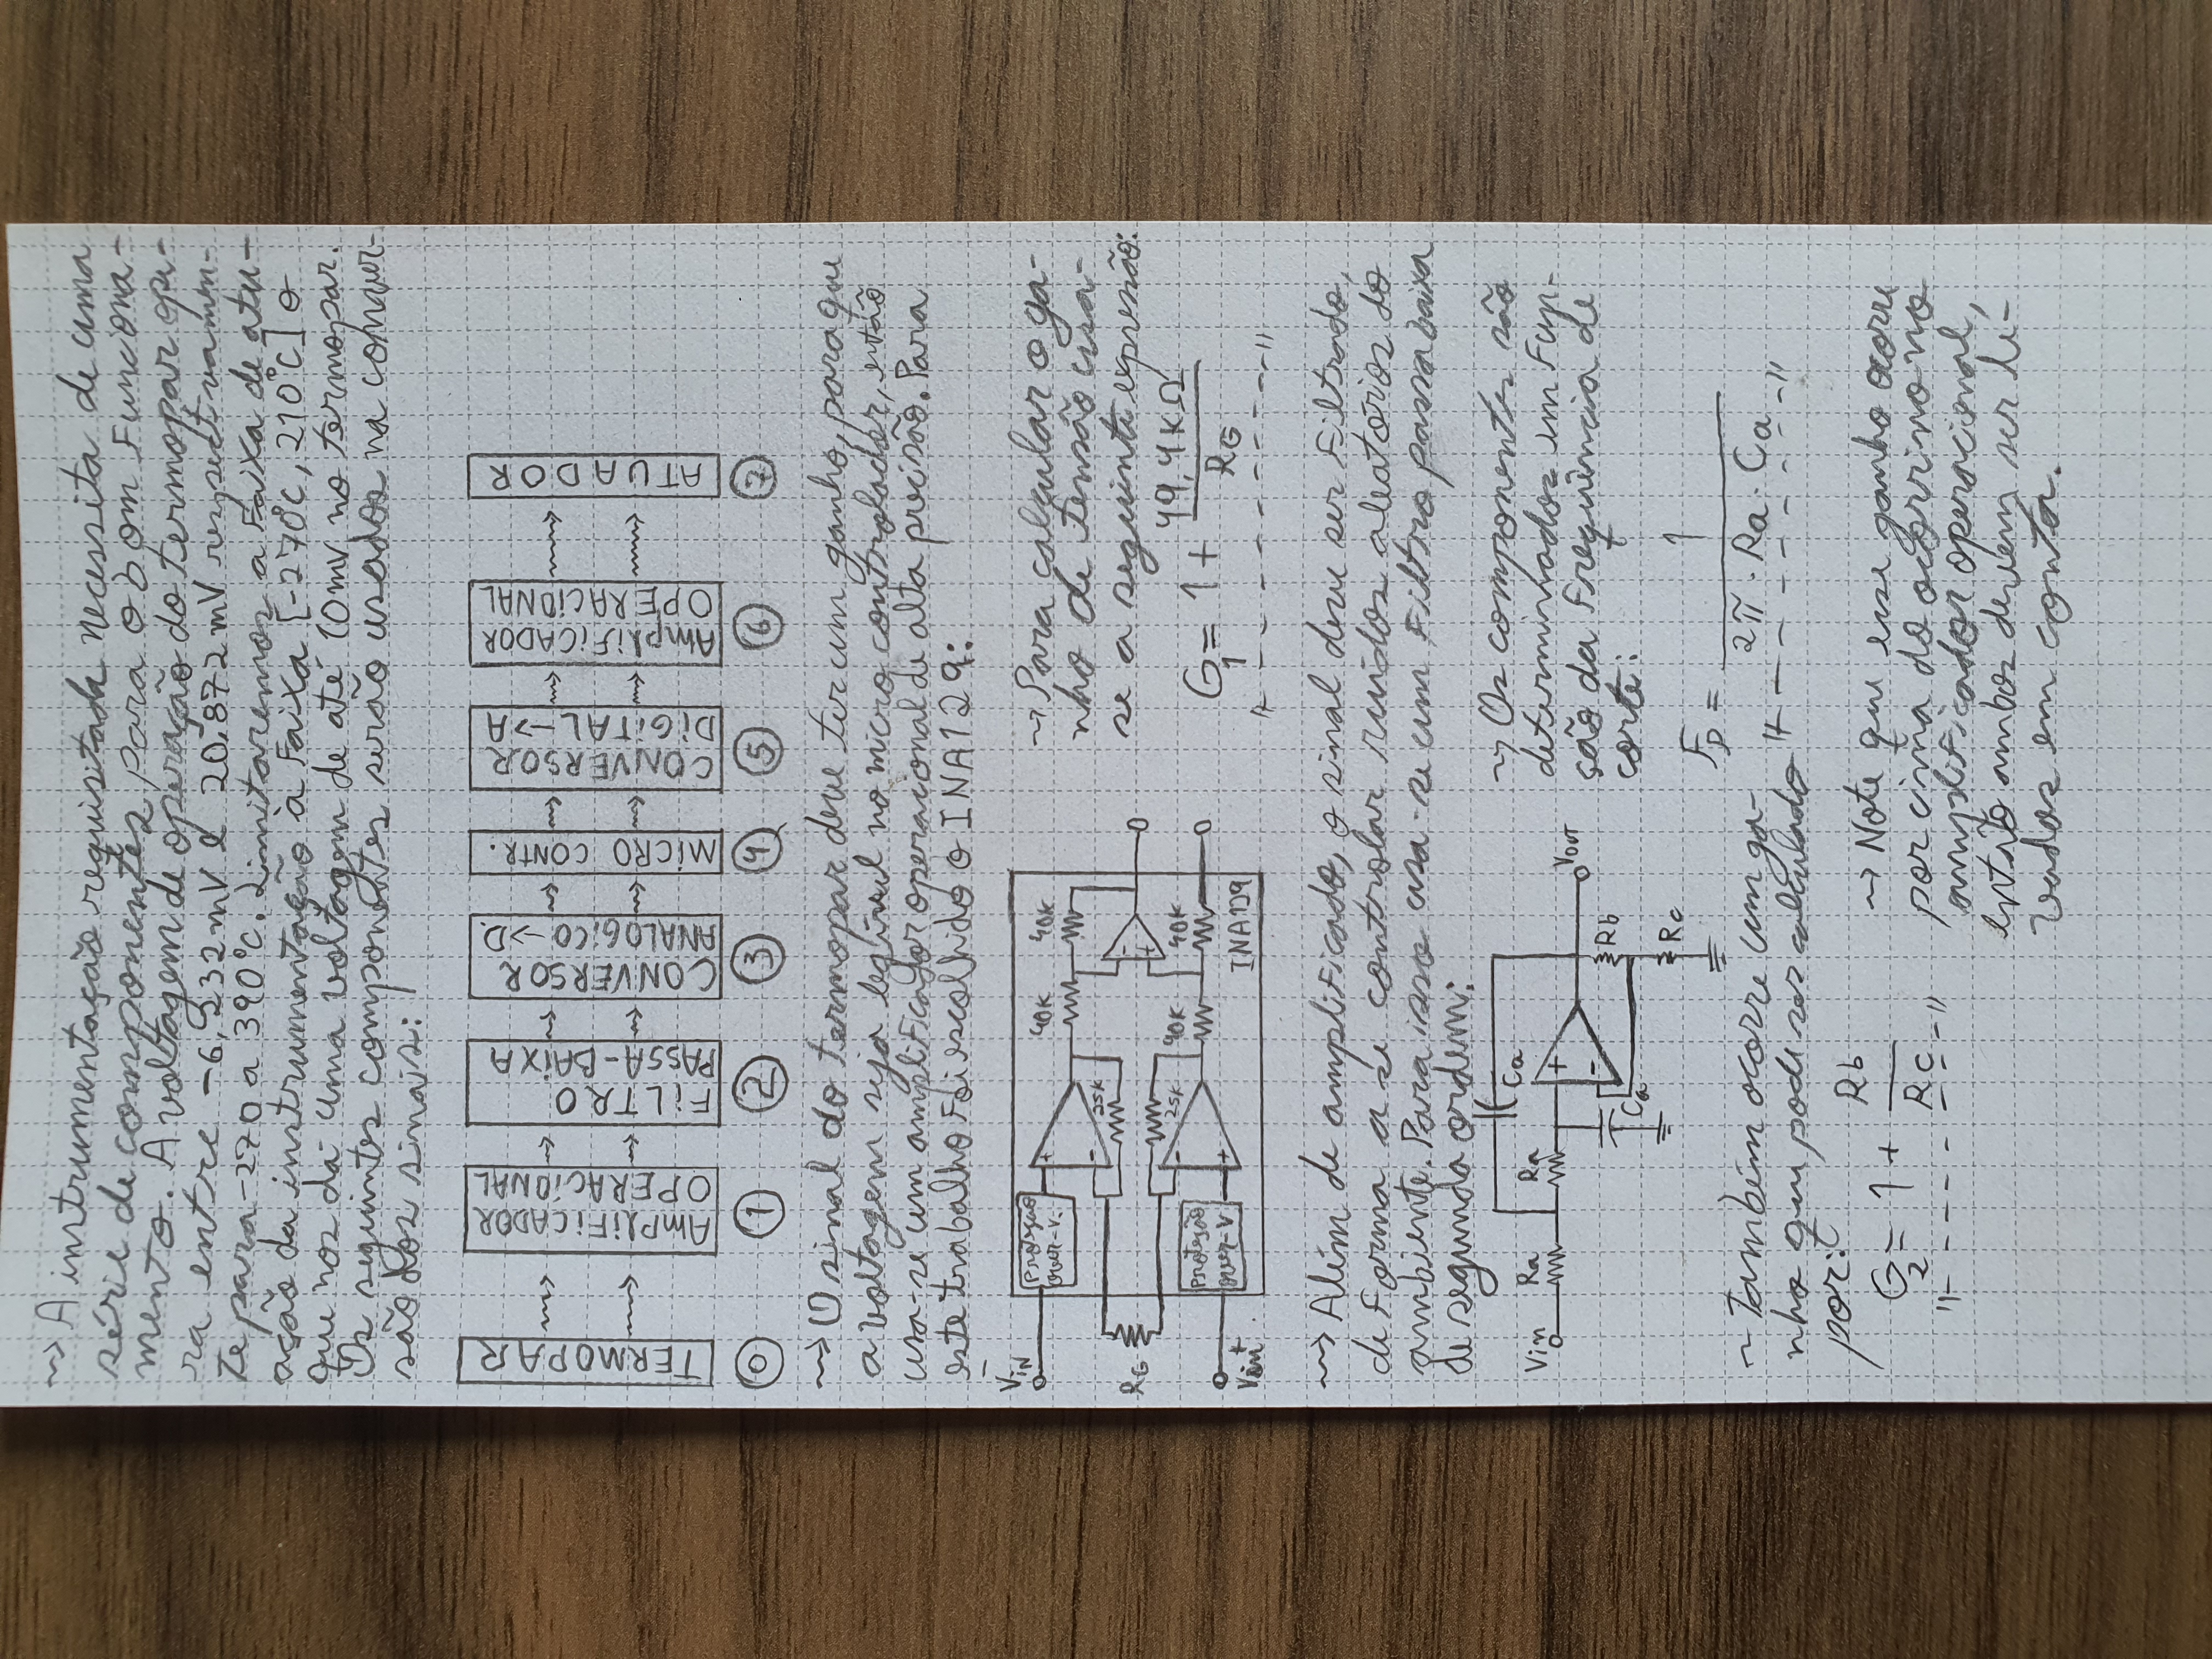 ~> A instrumentação requisitada necessita de uma
série de componentes para o bom funciona-
mento. A voltagem de operação do termopar ope-
ra entre -6,232mV e 20,872mV respectivamen-
te para -270 a 390°C. Limitaremos a faixa de atu-
ação da instrumentação à faixa [-270°C, 210°C] o
que nos dá uma voltagem de até 10mV no termopar.
Os seguintes componentes serão usados na conver-
são dos sinais:
TERMOPAR
AMPLIFICADOR
OPERACIONAL
FILTRO
PASSA-BAIXA
CONVERSOR
ANALOGICO->D.
MICRO CONTR.
CONVERSOR
DIGITAL->A
AMPLIFICADOR
OPERACIONAL
ATUADOR
0 1 2 3 4 5 6 7
~> O sinal do termopar deve ter um ganho, para que
a voltagem seja legível no micro controlador, então
usa-se um amplificador operacional de alta precisão. Para
este trabalho foi escolhido o INA129:
Vin-
Proteção
over-V.
+
-
25K
40K
40K
RG
-
+
25K
40K
40K
Proteção
over-V
-
+
Vin+
INA129
~> Para calcular o ga-
nho de tensão usa-
se a seguinte expressão:
G1 = 1 + 49,4KΩ / RG
~> Além de amplificado, o sinal deve ser filtrado,
de forma a se controlar ruidos aleatórios do
ambiente. Para isso usa-se um filtro passa baixa
de segunda ordem:
Vin
Ra
Ra
Ca
+
-
Vout
Ca
Rb
Rc
~> Os componentes são
determinados em fun-
ção da frequência de
corte:
Fp = 1 / 2π · Ra · Ca
~ Também ocorre um ga-
nho que pode ser calculado
por:
G2 = 1 + Rb / Rc
~> Note que esse ganho ocorre
por cima do ocorrino no
amplificador operacional,
então ambos devem ser le-
vados em conta.